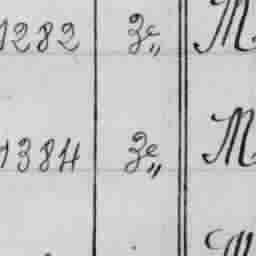 1282 3e„ M
1384 3e„ M